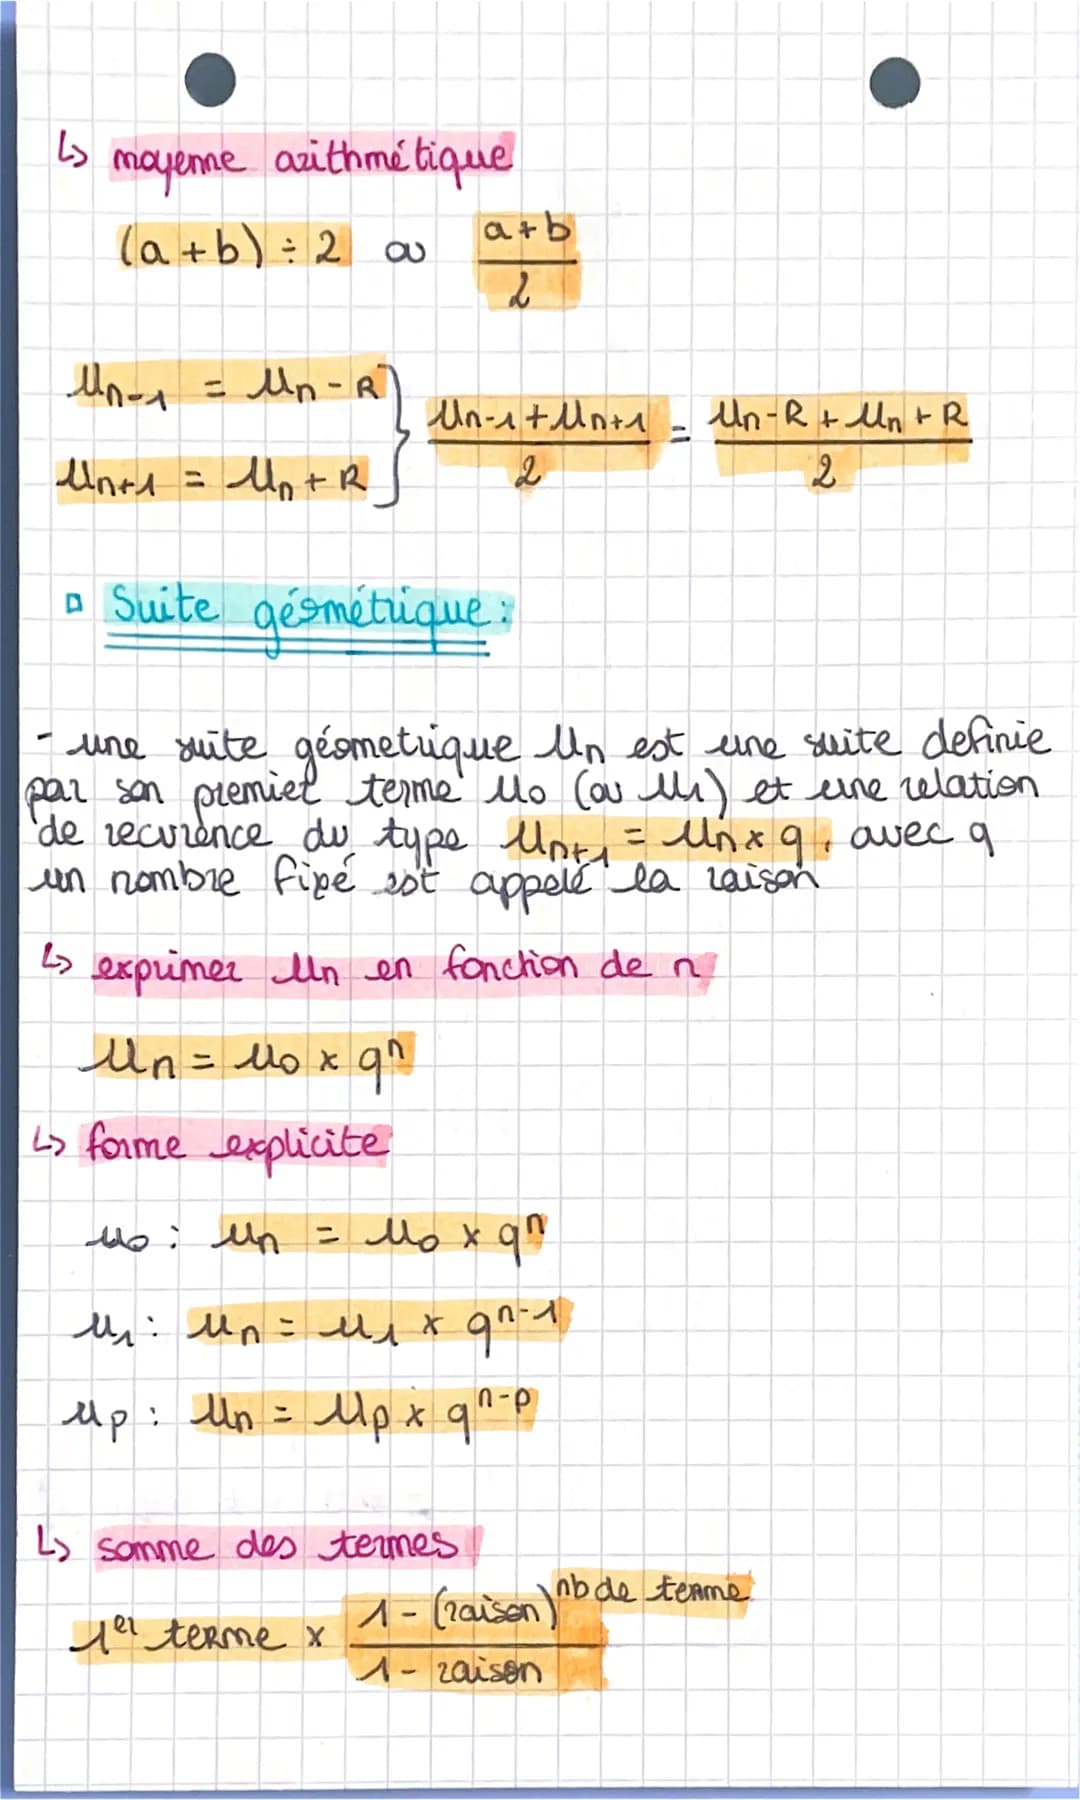 ↳ moyenne arithmétique
(a + b) ÷ 2 ou a+b / 2
Un-1 = Un - R
Un+1 = Un + R } Un-1 + Un+1 / 2 = Un - R + Un + R / 2
▫ Suite géométrique :
- une suite géometrique Un est une suite definie
par son premier terme U0 (ou U1) et une relation
de recurence du type Un+1 = Un x q, avec q
un nombre fixé est appelé la raison
↳ exprimer Un en fonction de n
Un = U0 x qⁿ
↳ forme explicite
u0 : Un = U0 x qⁿ
u1 : Un = U1 x qⁿ⁻¹
up : Un = Up x qⁿ⁻ᵖ
↳ somme des termes
1er terme x 1 - (raison)^nb de terme / 1 - raison